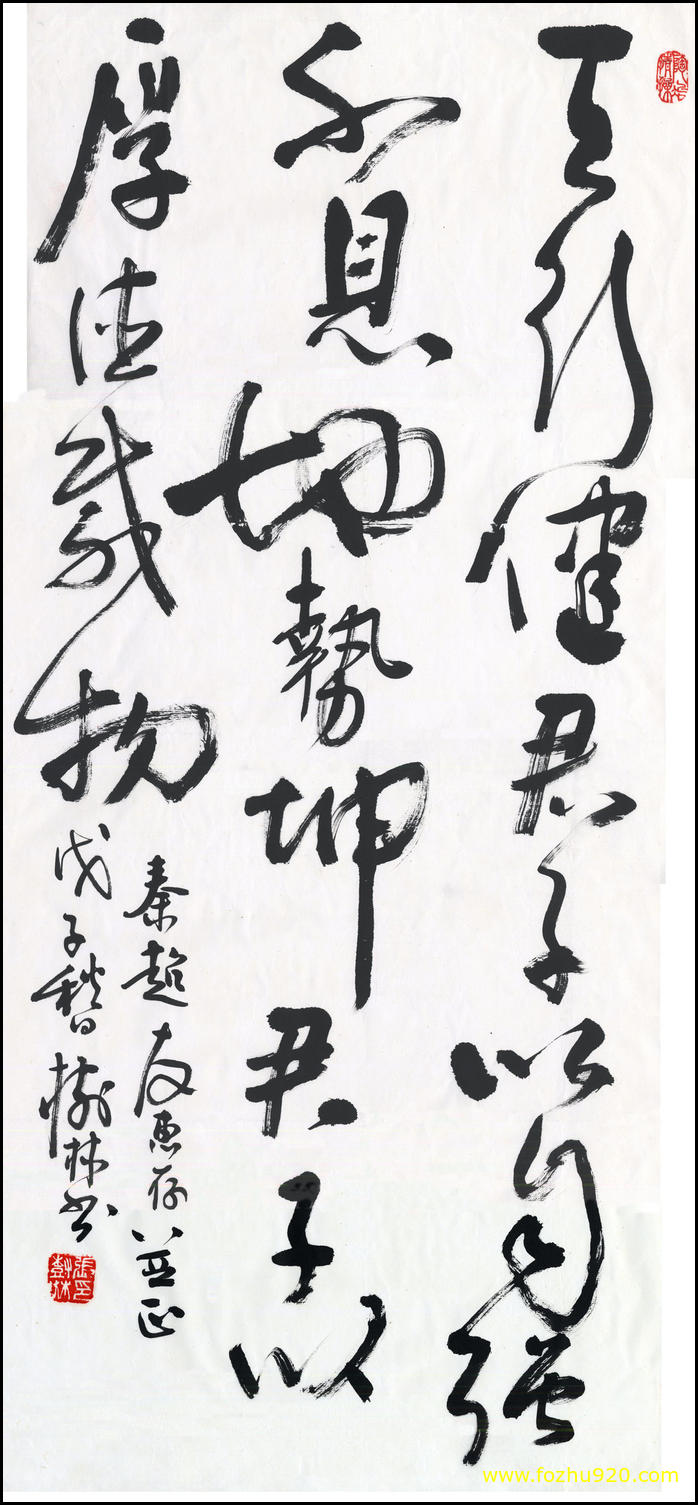 天行健君子以自强
不息地勢坤君子以
厚德载物
秦超友惠存并正
戊子秋日樹林书
www.fozhu920.com